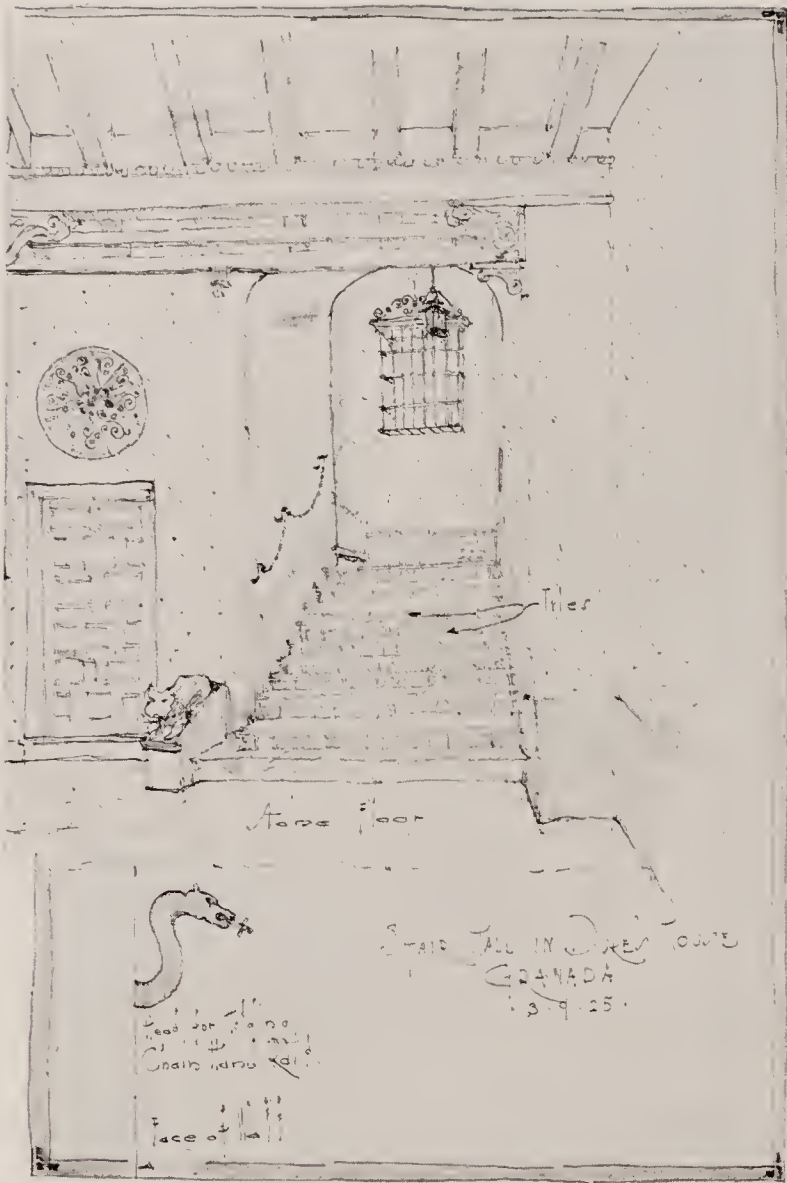 Tiles
Stone Floor
STAIR HALL IN HOUSE
GRANADA
3.9.25.
Head for
Chain Hand Rail
Face of